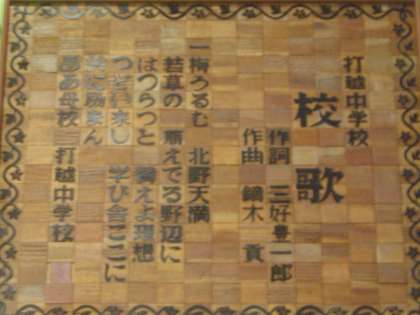 打越中学校
校歌
作詞 三好豊一郎
作曲 鏑木貢
一、梅うるむ 北野天満
若草の 萠えでる野辺に
はつらつと 燃えよ理想
つどい来し 学び舎ここに
共に励まん
母校 打越中学校